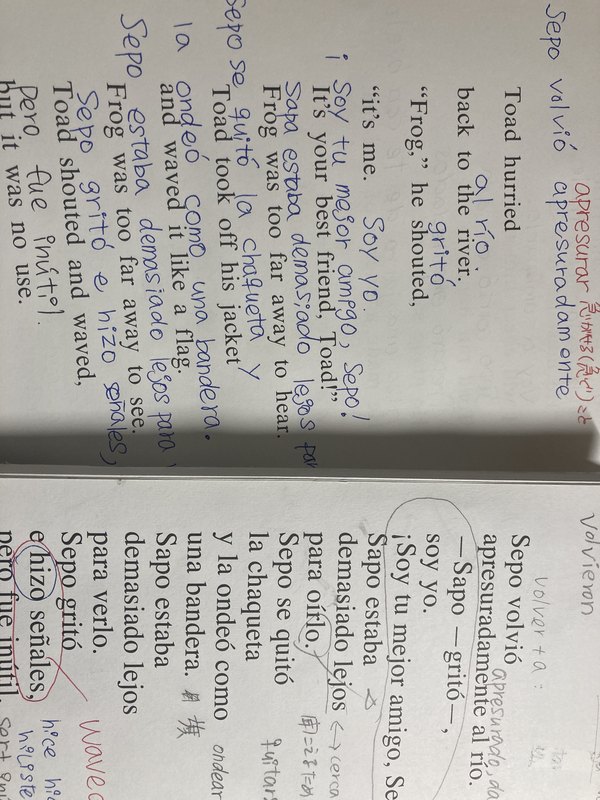 apresurar 急がせる(急ぐ)こと
Sepo volvió apresuradamente
Toad hurried
al río.
back to the river.
gritó
“Frog,” he shouted,
Soy yo.
“it’s me.
¡Soy tu mejor amigo, Sepo!
It’s your best friend, Toad!”
Sapo estaba demasiado lejos par
Frog was too far away to hear.
Sepo se quitó la chaqueta y
Toad took off his jacket
la ondeó como una bandera.
and waved it like a flag.
Sepo estaba demasiado lejos para
Frog was too far away to see.
Sepo gritó e hizo señales,
Toad shouted and waved,
pero fue inútil.
but it was no use.
volvieron
volver + a:
Sepo volvió
apresurado, da
apresuradamente al río.
—Sapo —gritó—,
soy yo.
¡Soy tu mejor amigo, Se
Sapo estaba
demasiado lejos ↔ cerca
para oírlo.
Sepo se quitó quitar
la chaqueta
y la ondeó como ondear
una bandera. 旗
Sapo estaba
demasiado lejos
para verlo.
Sepo gritó waved
e hizo señales, hice
hiciste
pero fue inútil.